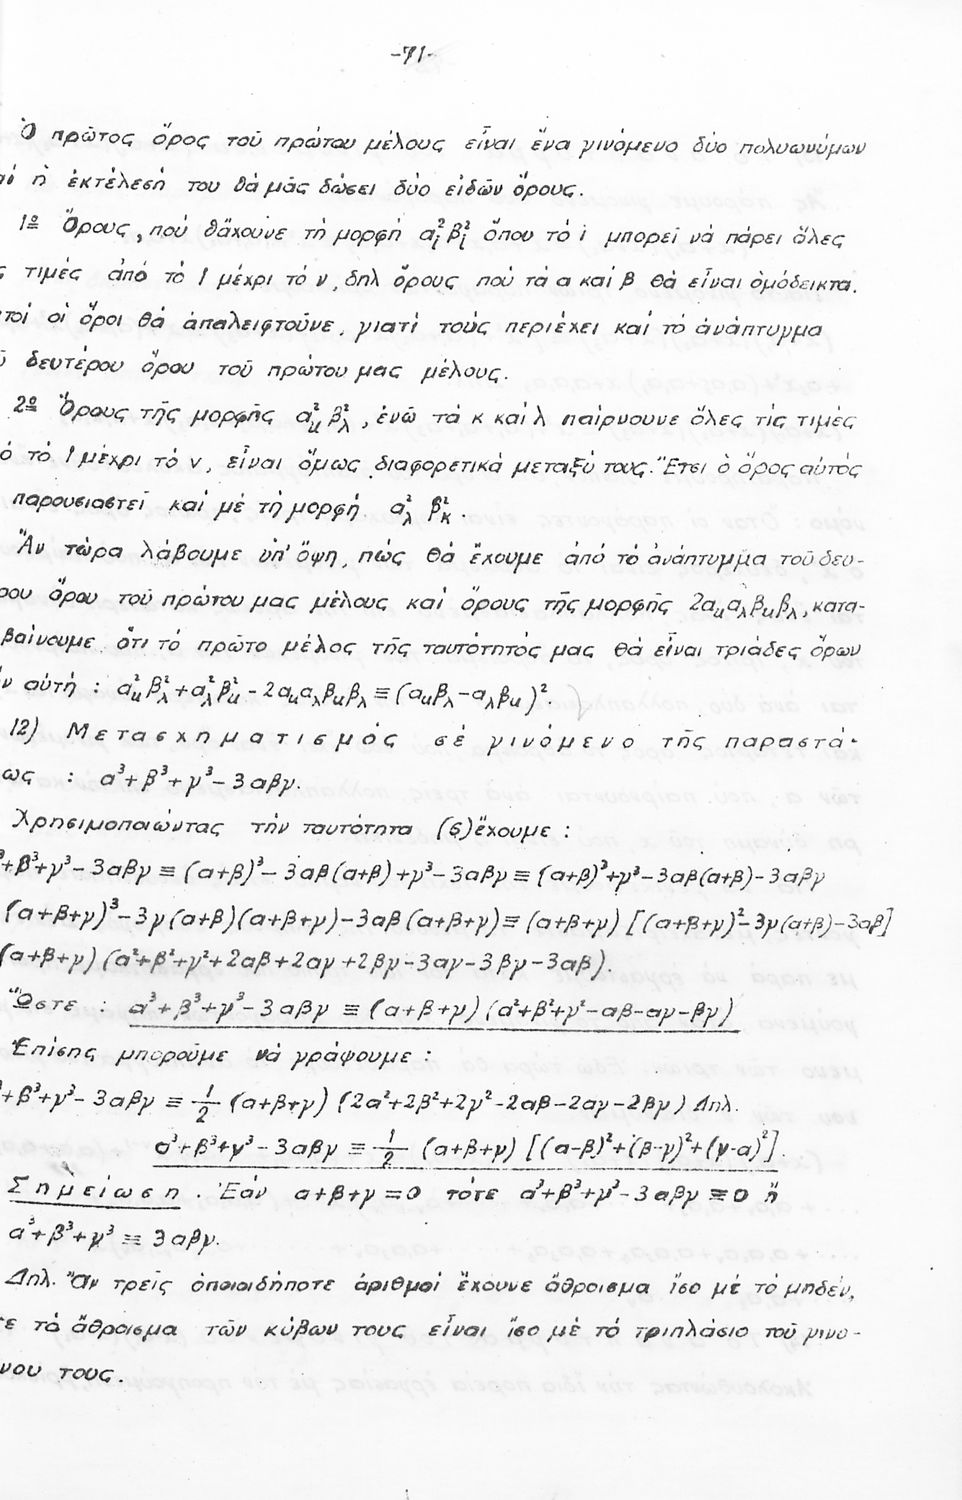 -71-
Ὁ πρῶτος ὅρος τοῦ πρώτου μέλους εἶναι ἕνα γινόμενο δύο πολυωνύμων
αί ἡ ἐκτέλεσή του θά μᾶς δώσει δύο εἰδῶν ὅρους.
1º Ὅρους, πού θἄχουνε τή μορφή α²ᵢβ²ᵢ ὅπου τό i μπορεῖ νά πάρει ὅλες
ς τιμές ἀπό τό 1 μέχρι τό ν, δηλ ὅρους πού τά α καί β θά εἶναι ὁμόδεικτα.
τοί οἱ ὅροι θά ἀπαλειφτοῦνε, γιατί τούς περιέχει καί τό ἀνάπτυγμα
ῦ δευτέρου ὅρου τοῦ πρώτου μας μέλους.
2º Ὅρους τῆς μορφῆς α²κ β²λ, ἐνῶ τά κ καί λ παίρνουνε ὅλες τίς τιμές
ό τό 1 μέχρι τό ν, εἶναι ὅμως διαφορετικά μεταξύ τους. Ἔτσι ὁ ὅρος αὐτός
παρουσιαστεῖ καί μέ τή μορφή α²λ β²κ.
Ἄν τώρα λάβουμε ὑπ' ὄψη, πώς θά ἔχουμε ἀπό τό ἀνάπτυγμα τοῦ δευ-
ρου ὅρου τοῦ πρώτου μας μέλους καί ὅρους τῆς μορφῆς 2ακαλβκβλ, κατα-
βαίνουμε ὅτι τό πρῶτο μέλος τῆς ταυτότητός μας θά εἶναι τριάδες ὅρων
ν αὐτή : α²κβ²λ+α²λβ²κ-2ακαλβκβλ≡(ακβλ-αλβκ)².
12) Μετασχηματισμός σέ γινόμενο τῆς παραστά-
ως : α³+β³+γ³-3αβγ.
Χρησιμοποιώντας τήν ταυτότητα (6) ἔχουμε :
³+β³+γ³-3αβγ≡(α+β)³-3αβ(α+β)+γ³-3αβγ≡(α+β)³+γ³-3αβ(α+β)-3αβγ
(α+β+γ)³-3γ(α+β)(α+β+γ)-3αβ(α+β+γ)≡(α+β+γ)[(α+β+γ)²-3γ(α+β)-3αβ]
(α+β+γ)(α²+β²+γ²+2αβ+2αγ+2βγ-3αγ-3βγ-3αβ).
Ὥστε : α³+β³+γ³-3αβγ≡(α+β+γ)(α²+β²+γ²-αβ-αγ-βγ)
Ἐπίσης μποροῦμε νά γράψουμε :
³+β³+γ³-3αβγ≡1/2(α+β+γ)(2α²+2β²+2γ²-2αβ-2αγ-2βγ) Δηλ.
α³+β³+γ³-3αβγ≡1/2(α+β+γ)[(α-β)²+(β-γ)²+(γ-α)²].
Σημείωση. Ἐάν α+β+γ=0 τότε α³+β³+γ³-3αβγ≡0 ἤ
α³+β³+γ³≡3αβγ.
Δηλ. Ἄν τρεῖς ὁποιοιδήποτε ἀριθμοί ἔχουνε ἄθροισμα ἴσο μέ τό μηδέν,
τε τό ἄθροισμα τῶν κύβων τους εἶναι ἴσο μέ τό τριπλάσιο τοῦ γινο-
νου τους.